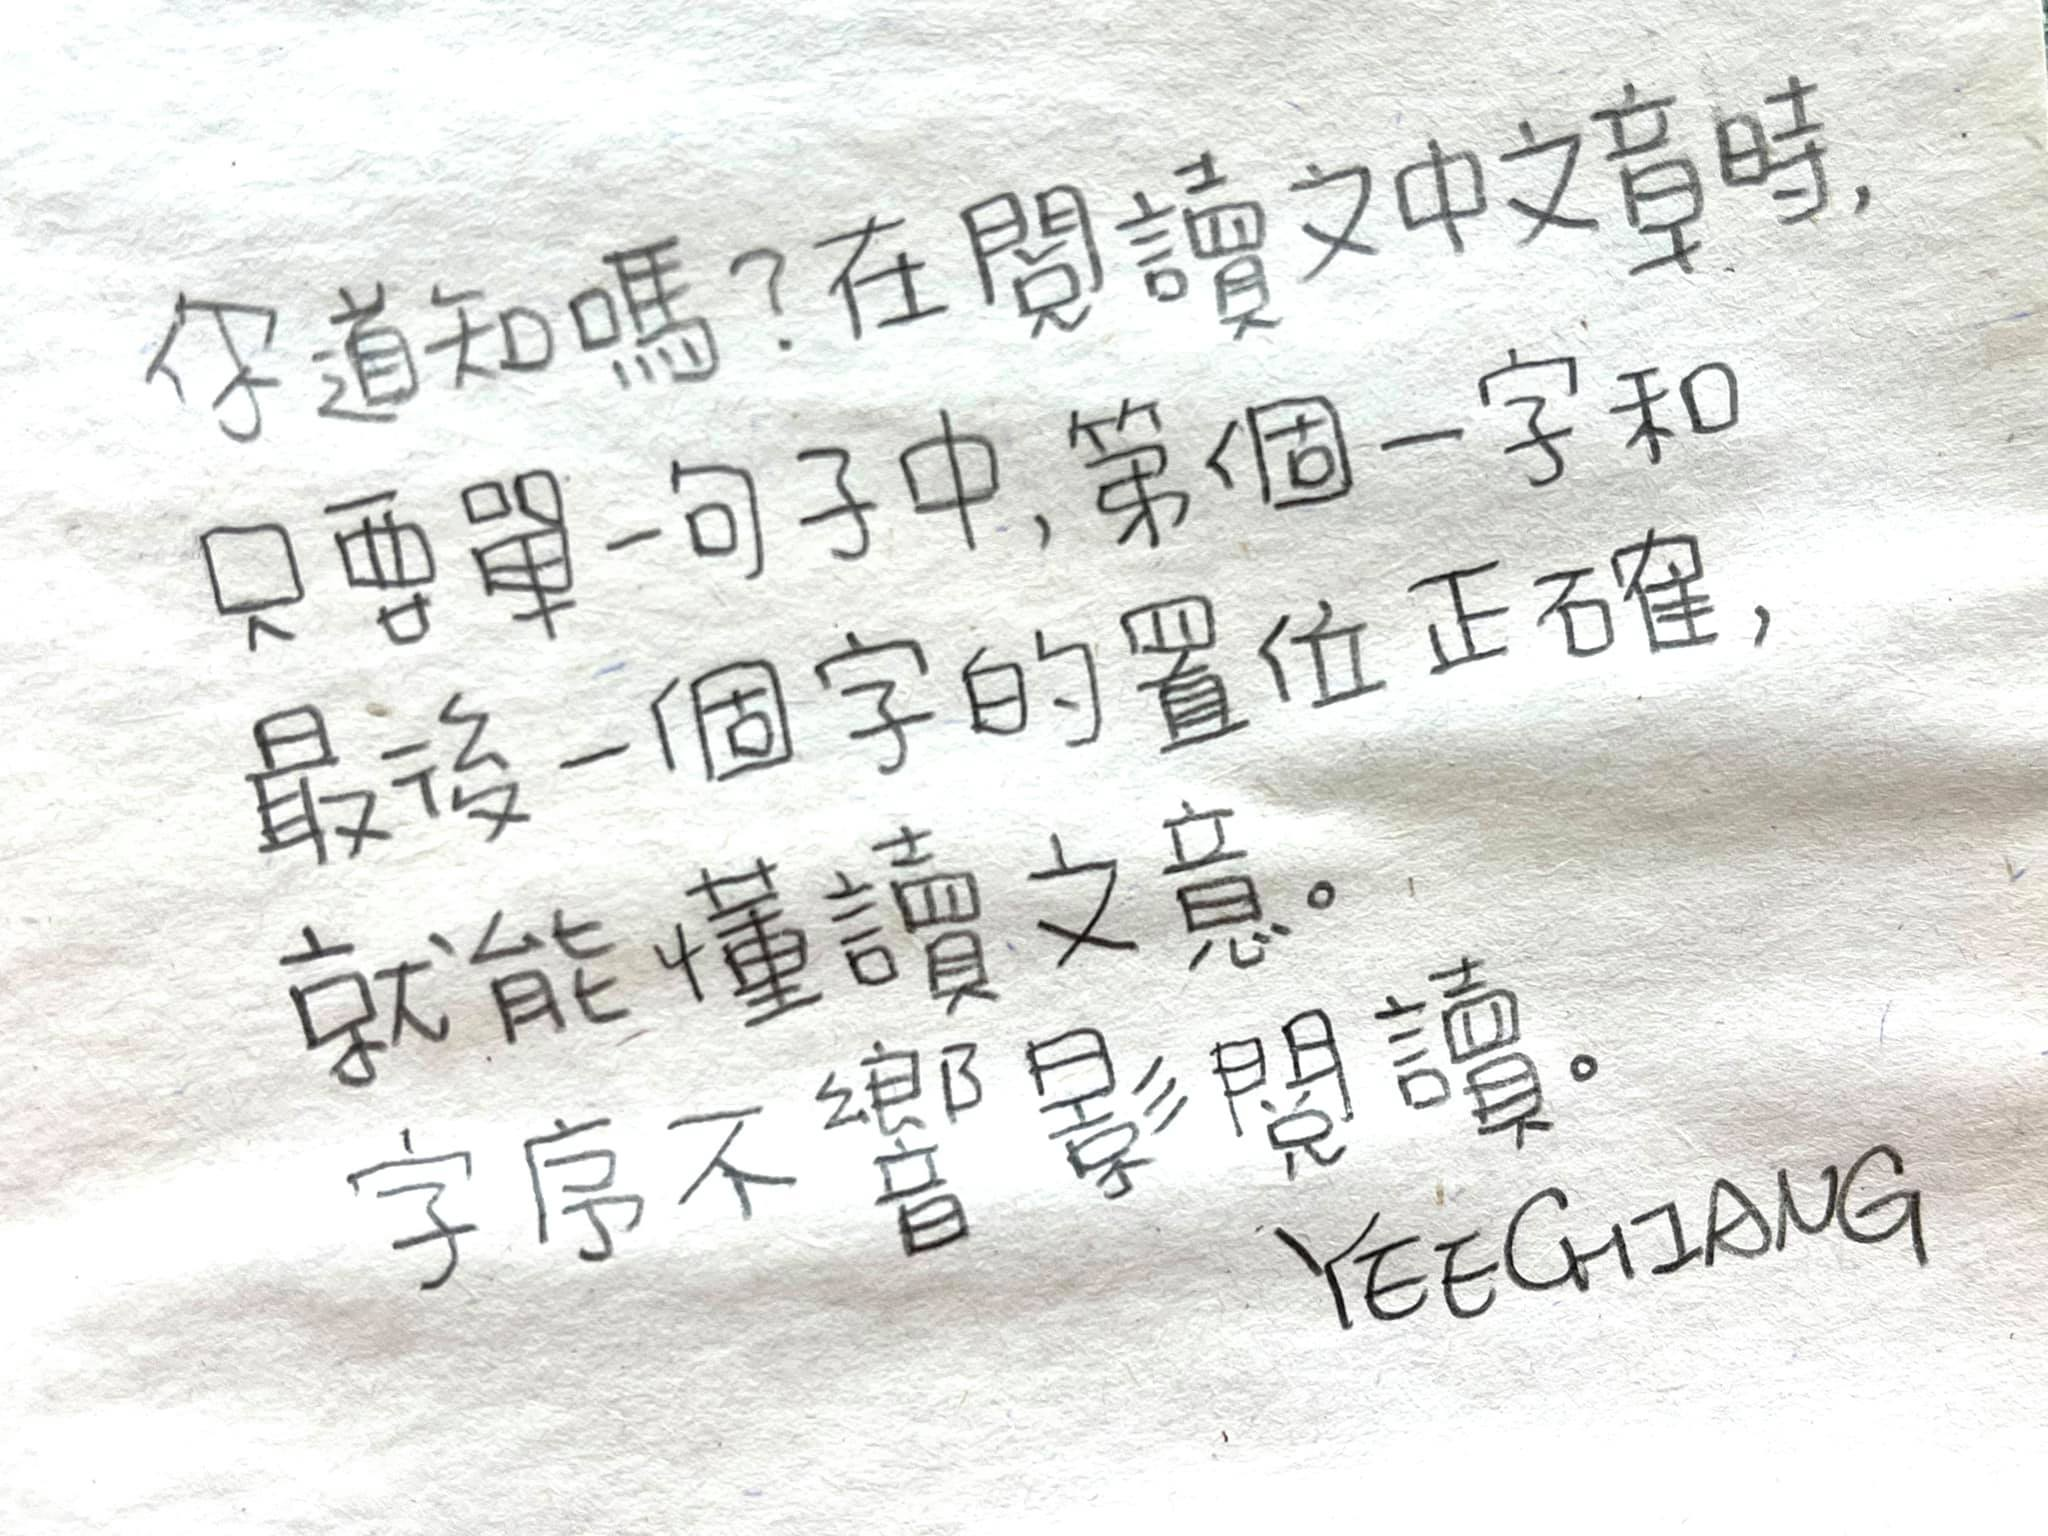 你道知嗎？在閱讀文中文章時，
只要單一句子中，第個一字和
最後一個字的置位正確，
就能懂讀文意。
字序不響影閱讀。
YEECHIANG